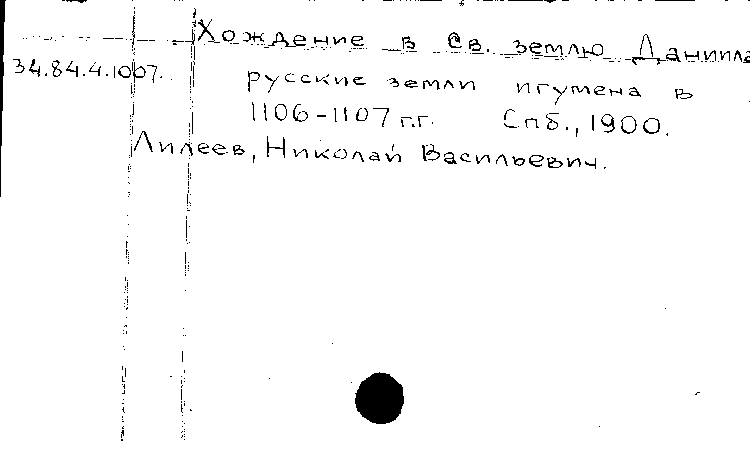 Хождение в Св. землю Даниила
34.84.4.1007. русские земли игумена в
1106-1107 г.г. Спб., 1900.
Лилеев, Николай Васильевич.